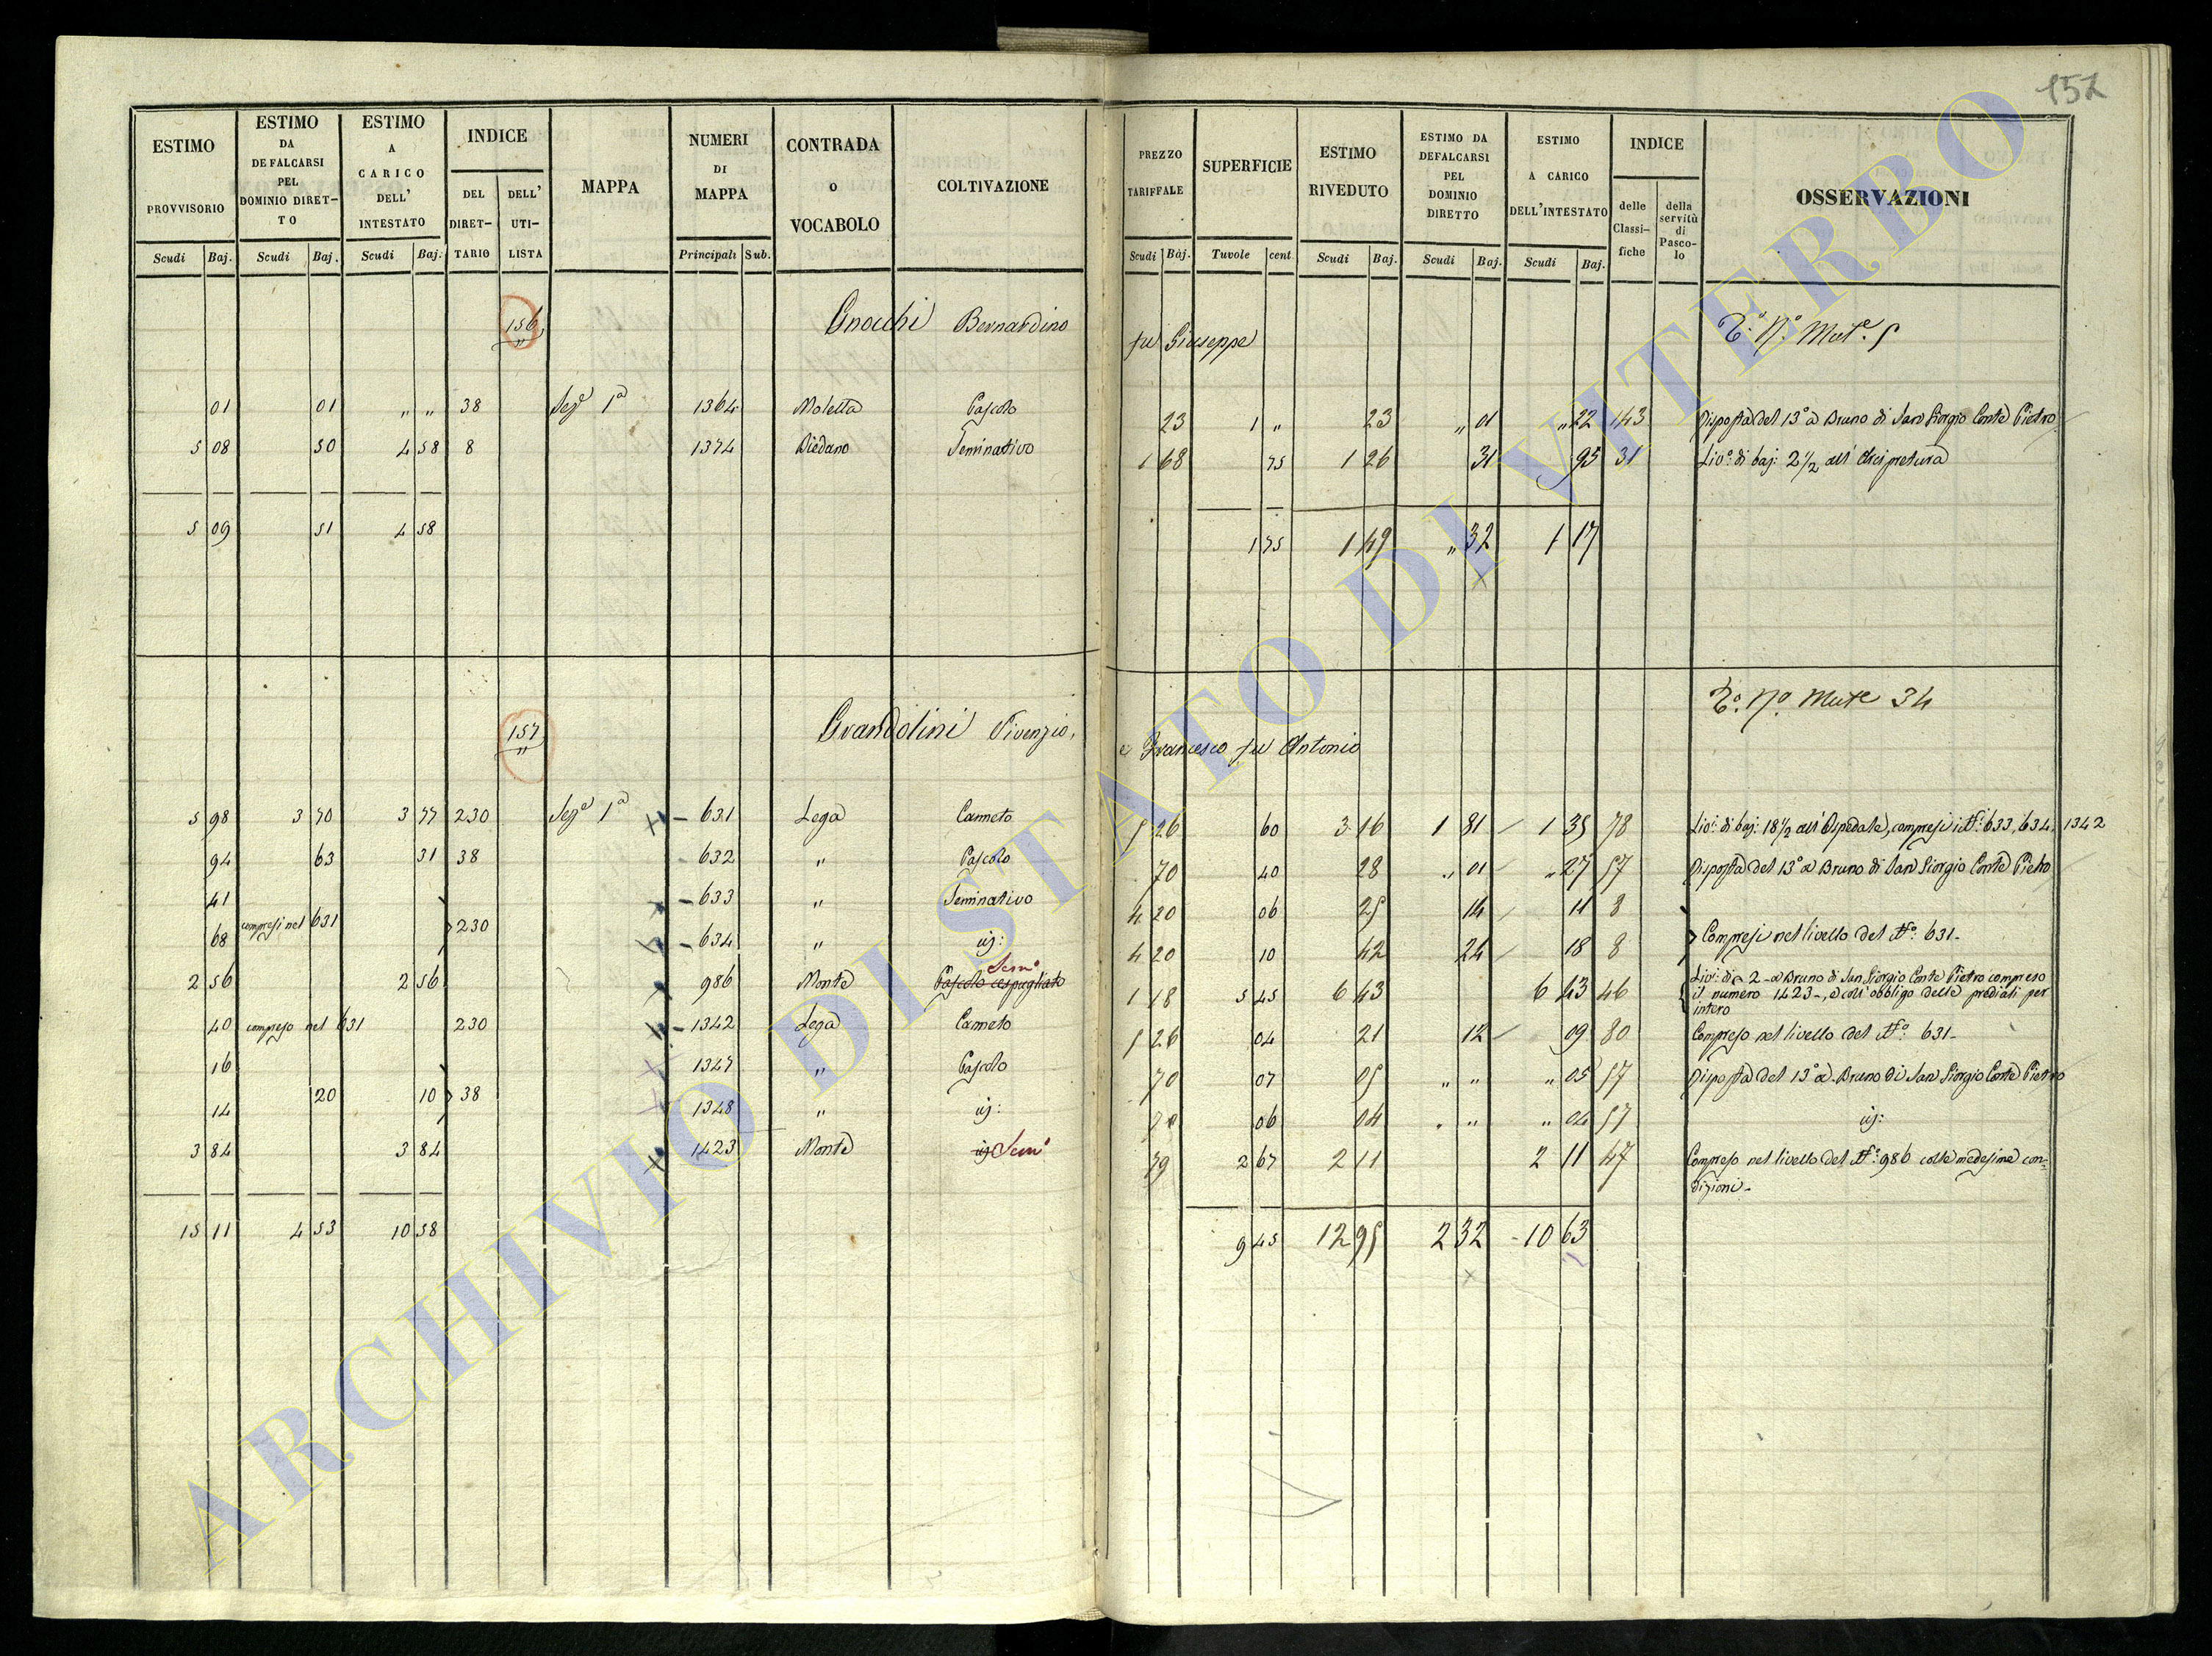 152
ESTIMO PROVVISORIO
ESTIMO DA DEFALCARSI PEL DOMINIO DIRET-TO
ESTIMO A CARICO DELL' INTESTATO
INDICE
DEL DIRET-TARIO
DELL' UTI-LISTA
MAPPA
NUMERI DI MAPPA
CONTRADA o VOCABOLO
COLTIVAZIONE
PREZZO TARIFFALE
SUPERFICIE
ESTIMO RIVEDUTO
ESTIMO DA DEFALCARSI PEL DOMINIO DIRETTO
ESTIMO A CARICO DELL'INTESTATO
INDICE
delle Classi-fiche
della servitù di Pasco-lo
OSSERVAZIONI
Scudi Baj. Scudi Baj. Scudi Baj. Principali Sub. Scudi Baj. Tavole cent. Scudi Baj. Scudi Baj. Scudi Baj.
156 Gnocchi Bernardino fu Giuseppe
01 01 " " 38 Sez.e 1a 1364 Moletta Pascolo 23 1 " 23 " 01 " 22 143 Risposta del 13° a Bruno di San Giorgio Conte Pietro
5 08 50 4 58 8 1374 Piedano Seminativo 1 68 75 1 26 31 95 31 Liv.o di baj: 2 1/2 all' Arcipretura
5 09 51 4 58 1 75 1 49 " 32 1 17
157 Grandolini Vivenzio, e Francesco fu Antonio
5 98 3 70 3 77 230 Sez.e 1a 631 Lega Canneto 5 26 60 3 16 1 81 1 35 78 Liv.i di baj: 18 1/2 all' Ospedale, compresi i N.i 633, 634, 1342
94 63 31 38 632 " Pascolo 70 40 28 " 01 " 27 57 Risposta del 13° a Bruno di San Giorgio Conte Pietro
41 633 " Seminativo 4 20 06 25 14 11 8
compresi nel 631 230 Compresi nel livello del N.o: 631-
68 634 " uj: 4 20 10 42 24 18 8
Sem.o
2 56 2 56 986 Monte Pascolo cespugliato 1 18 5 45 6 43 6 43 46 Liv.i di 2 - a Bruno di San Giorgio Conte Pietro compreso
il numero 1423-, e coll' obbligo delle prediali per
intero
40 compreso nel 631 230 1342 Lega Canneto 5 26 04 21 12 09 80 Compreso nel livello del N.o: 631-
16 1347 " Pascolo 70 07 05 " " " 05 57 Risposta del 13° a Bruno di San Giorgio Conte Pietro
20 10 38
14 1348 " uj: 70 06 04 " " " 04 57 uj:
3 84 3 84 1423 Monte uj Sem.o 79 2 67 2 11 2 11 47 Compreso nel livello del N.o: 986 colle medesime con-
dizioni-
15 11 4 53 10 58 9 45 12 95 2 32 10 63
ARCHIVIO DI STATO DI VITERBO